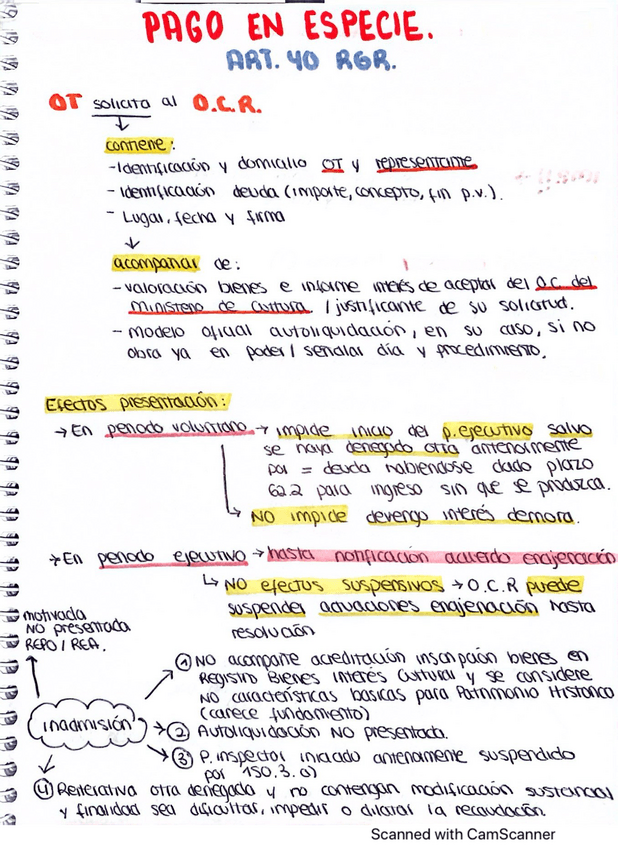 PAGO EN ESPECIE.
ART. 40 RGR.
OT solicita al O.C.R.
contiene:
- Identificación y domicilio OT y representante
- Identificación deuda (importe, concepto, fin p.v.).
- Lugar, fecha y firma
acompañar de:
- valoración bienes e informe interés de aceptar del O.C. del
Ministerio de Cultura. / justificante de su solicitud.
- Modelo oficial autoliquidación, en su caso, si no
obra ya en poder / señalar día y procedimiento.
Efectos presentación:
→ En periodo voluntario → impide inicio del p. ejecutivo salvo
se haya denegado otra anteriormente
por = deuda habiéndose dado plazo
62.2 para ingreso sin que se produzca.
↳ NO impide devengo interés demora.
→ En periodo ejecutivo → hasta notificación acuerdo enajenación
↳ NO efectos suspensivos → O.C.R puede
suspender actuaciones enajenación hasta
resolución
motivada
NO presentada
REPO / REA.
inadmisión
① NO acompañe acreditación inscripción bienes en
Registro Bienes Interés Cultural y se considere
NO características básicas para Patrimonio Histórico
(carece fundamento)
② Autoliquidación NO presentada.
③ P. inspector iniciado anteriormente suspendido
por 150.3.a)
④ Reiterativa otra denegada y no contengan modificación sustancial
y finalidad sea dificultar, impedir o dilatar la recaudación.
Scanned with CamScanner